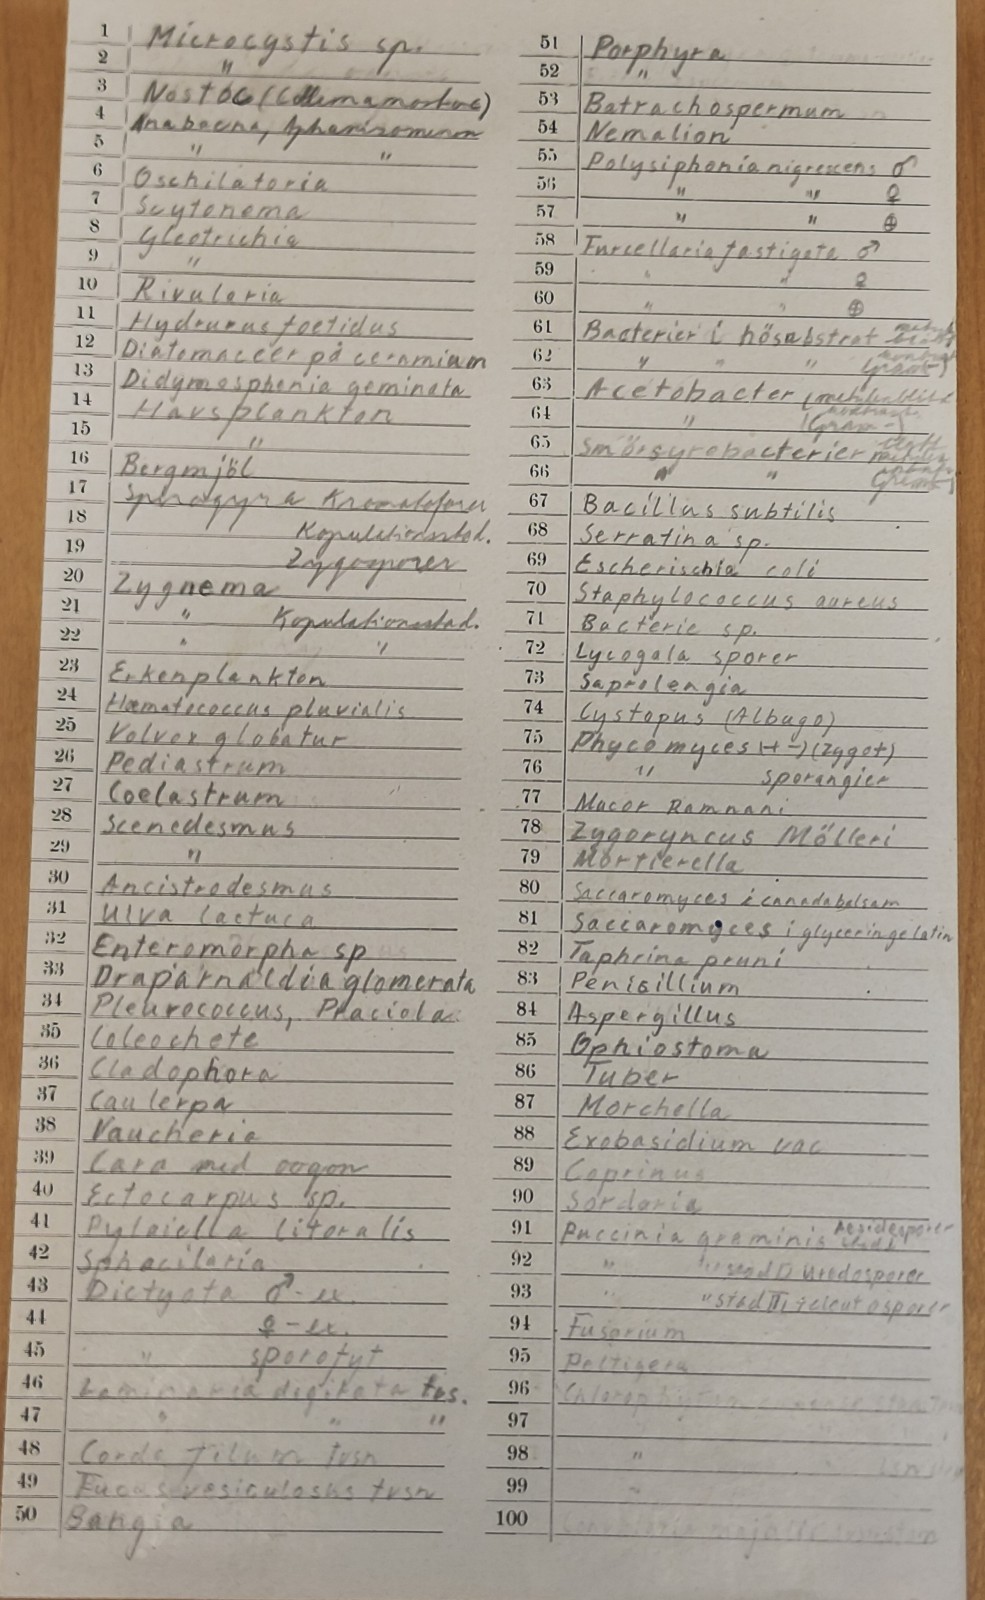 1 Microcystis sp.
2 "
3 Nostoc (
4 Anabaena,
5 " "
6 Oschilatoria
7 Scytonema
8 Gleotrichia
9 "
10 Rivularia
11 Hydrurus foetidus
12 Diatomaceer på ceramium
13 Didymosphenia geminata
14 Havsplankton
15 "
16 Bergmjöl
17 Spirogyra Kromatoforer
18 Kopulationsstad.
19 Zygosporer
20 Zygnema
21 " Kopulationsstad.
22 " "
23 Erkenplankton
24 Hæmatococcus pluvialis
25 Volvox globatur
26 Pediastrum
27 Coelastrum
28 Scenedesmus
29 "
30 Ancistrodesmus
31 Ulva lactuca
32 Enteromorpha sp
33 Draparnaldia glomerata
34 Pleurococcus, Praciola
35 Coleochete
36 Cladophora
37 Caulerpa
38 Vaucheria
39 Cara med oogon
40 Ectocarpus sp.
41 Pylaiella litoralis
42 Sphacilaria
43 Dictyota ♂-ex.
44 ♀-ex.
45 " sporofyt
46 Laminaria digitata tvs.
47 " " "
48 Corda filum tvsn
49 Fucus vesiculosus tvsn
50 Bangia
51 Porphyra
52 "
53 Batrachospermum
54 Nemalion
55 Polysiphonia nigrescens ♂
56 " " ♀
57 " " ⊕
58 Furcellaria fastigata ♂
59 " " ♀
60 " " ⊕
61 Bacterier i hösubstrat
62 " " "
63 Acetobacter
64 " (Gram-)
65 Smörsyrobacterier
66 " "
67 Bacillus subtilis
68 Serratina sp.
69 Escherischia coli
70 Staphylococcus aureus
71 Bacterie sp.
72 Lycogala sporer
73 Saprolengia
74 Cystopus (Albugo)
75 Phycomyces (+ -) (zygot)
76 " sporangier
77 Mucor Ramnani
78 Zygoryncus Mölleri
79 Mortierella
80 Saccaromyces i canadabalsam
81 Saccaromyces i glyceringelatin
82 Taphrina pruni
83 Penisillium
84 Aspergillus
85 Ophiostoma
86 Tuber
87 Morchella
88 Exobasidium vac
89 Coprinus
90 Sordaria
91 Puccinia graminis
92 " " stad II uredosporer
93 " " stad III teleutosporer
94 Fusarium
95 Peltigera
96
97
98 "
99 "
100